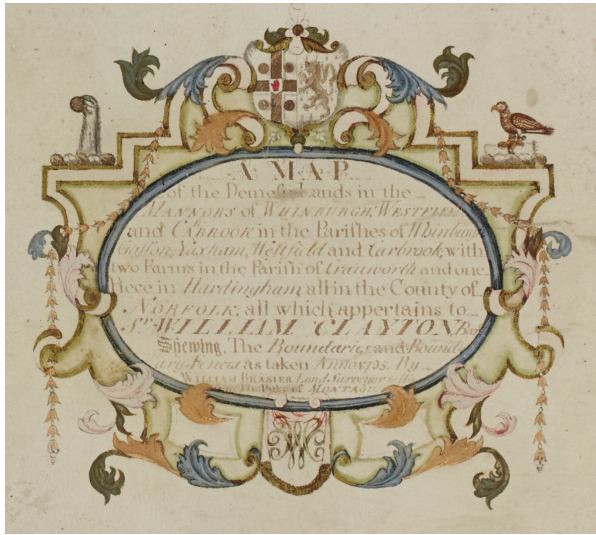 A MAP
of the Demesne Lands in the
MANNORS of WHINBURGH, WESTFIELD
and CARBROOK in the Parishes of Whinburgh
Garson, Yaxham, Westfield and Carbrook, with
two Farms in the Parish of Cranworth and one
Piece in Hardingham all in the County of
NORFOLK, all which appertains to
Sr. WILLIAM CLAYTON Bart
Shewing, The Boundaries and Bound-
ary-Fences as taken Anno By
WILLIAM BRASIER Land Surveyor
The Duke of MONTAGU